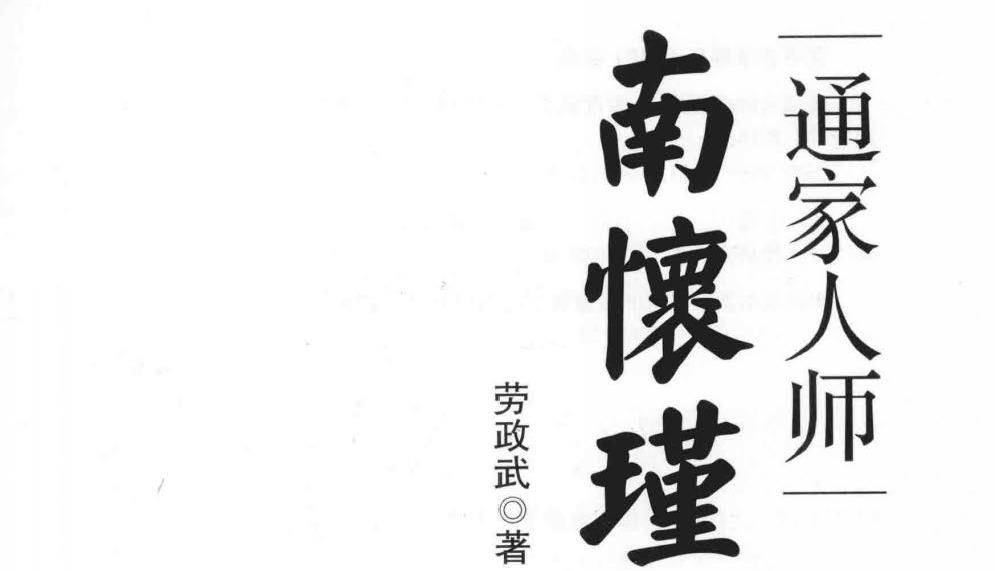 通家人师
南懷瑾
劳政武◎著